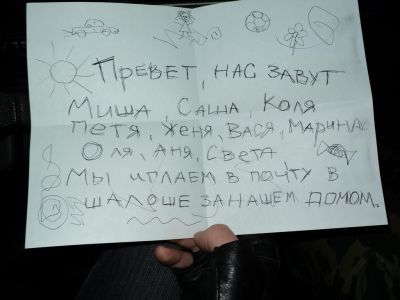 ПРЕВЕТ, НАС ЗАВУТ
МИША, САША, КОЛЯ
ПЕТЯ, ЖЕНЯ, ВАСЯ, МАРИНА
ОЛЯ, АНЯ, СВЕТА
МЫ ИГЛАЕМ В ПОЧТУ В
ШАЛОШЕ ЗАНАШЕМ ДОМОМ.